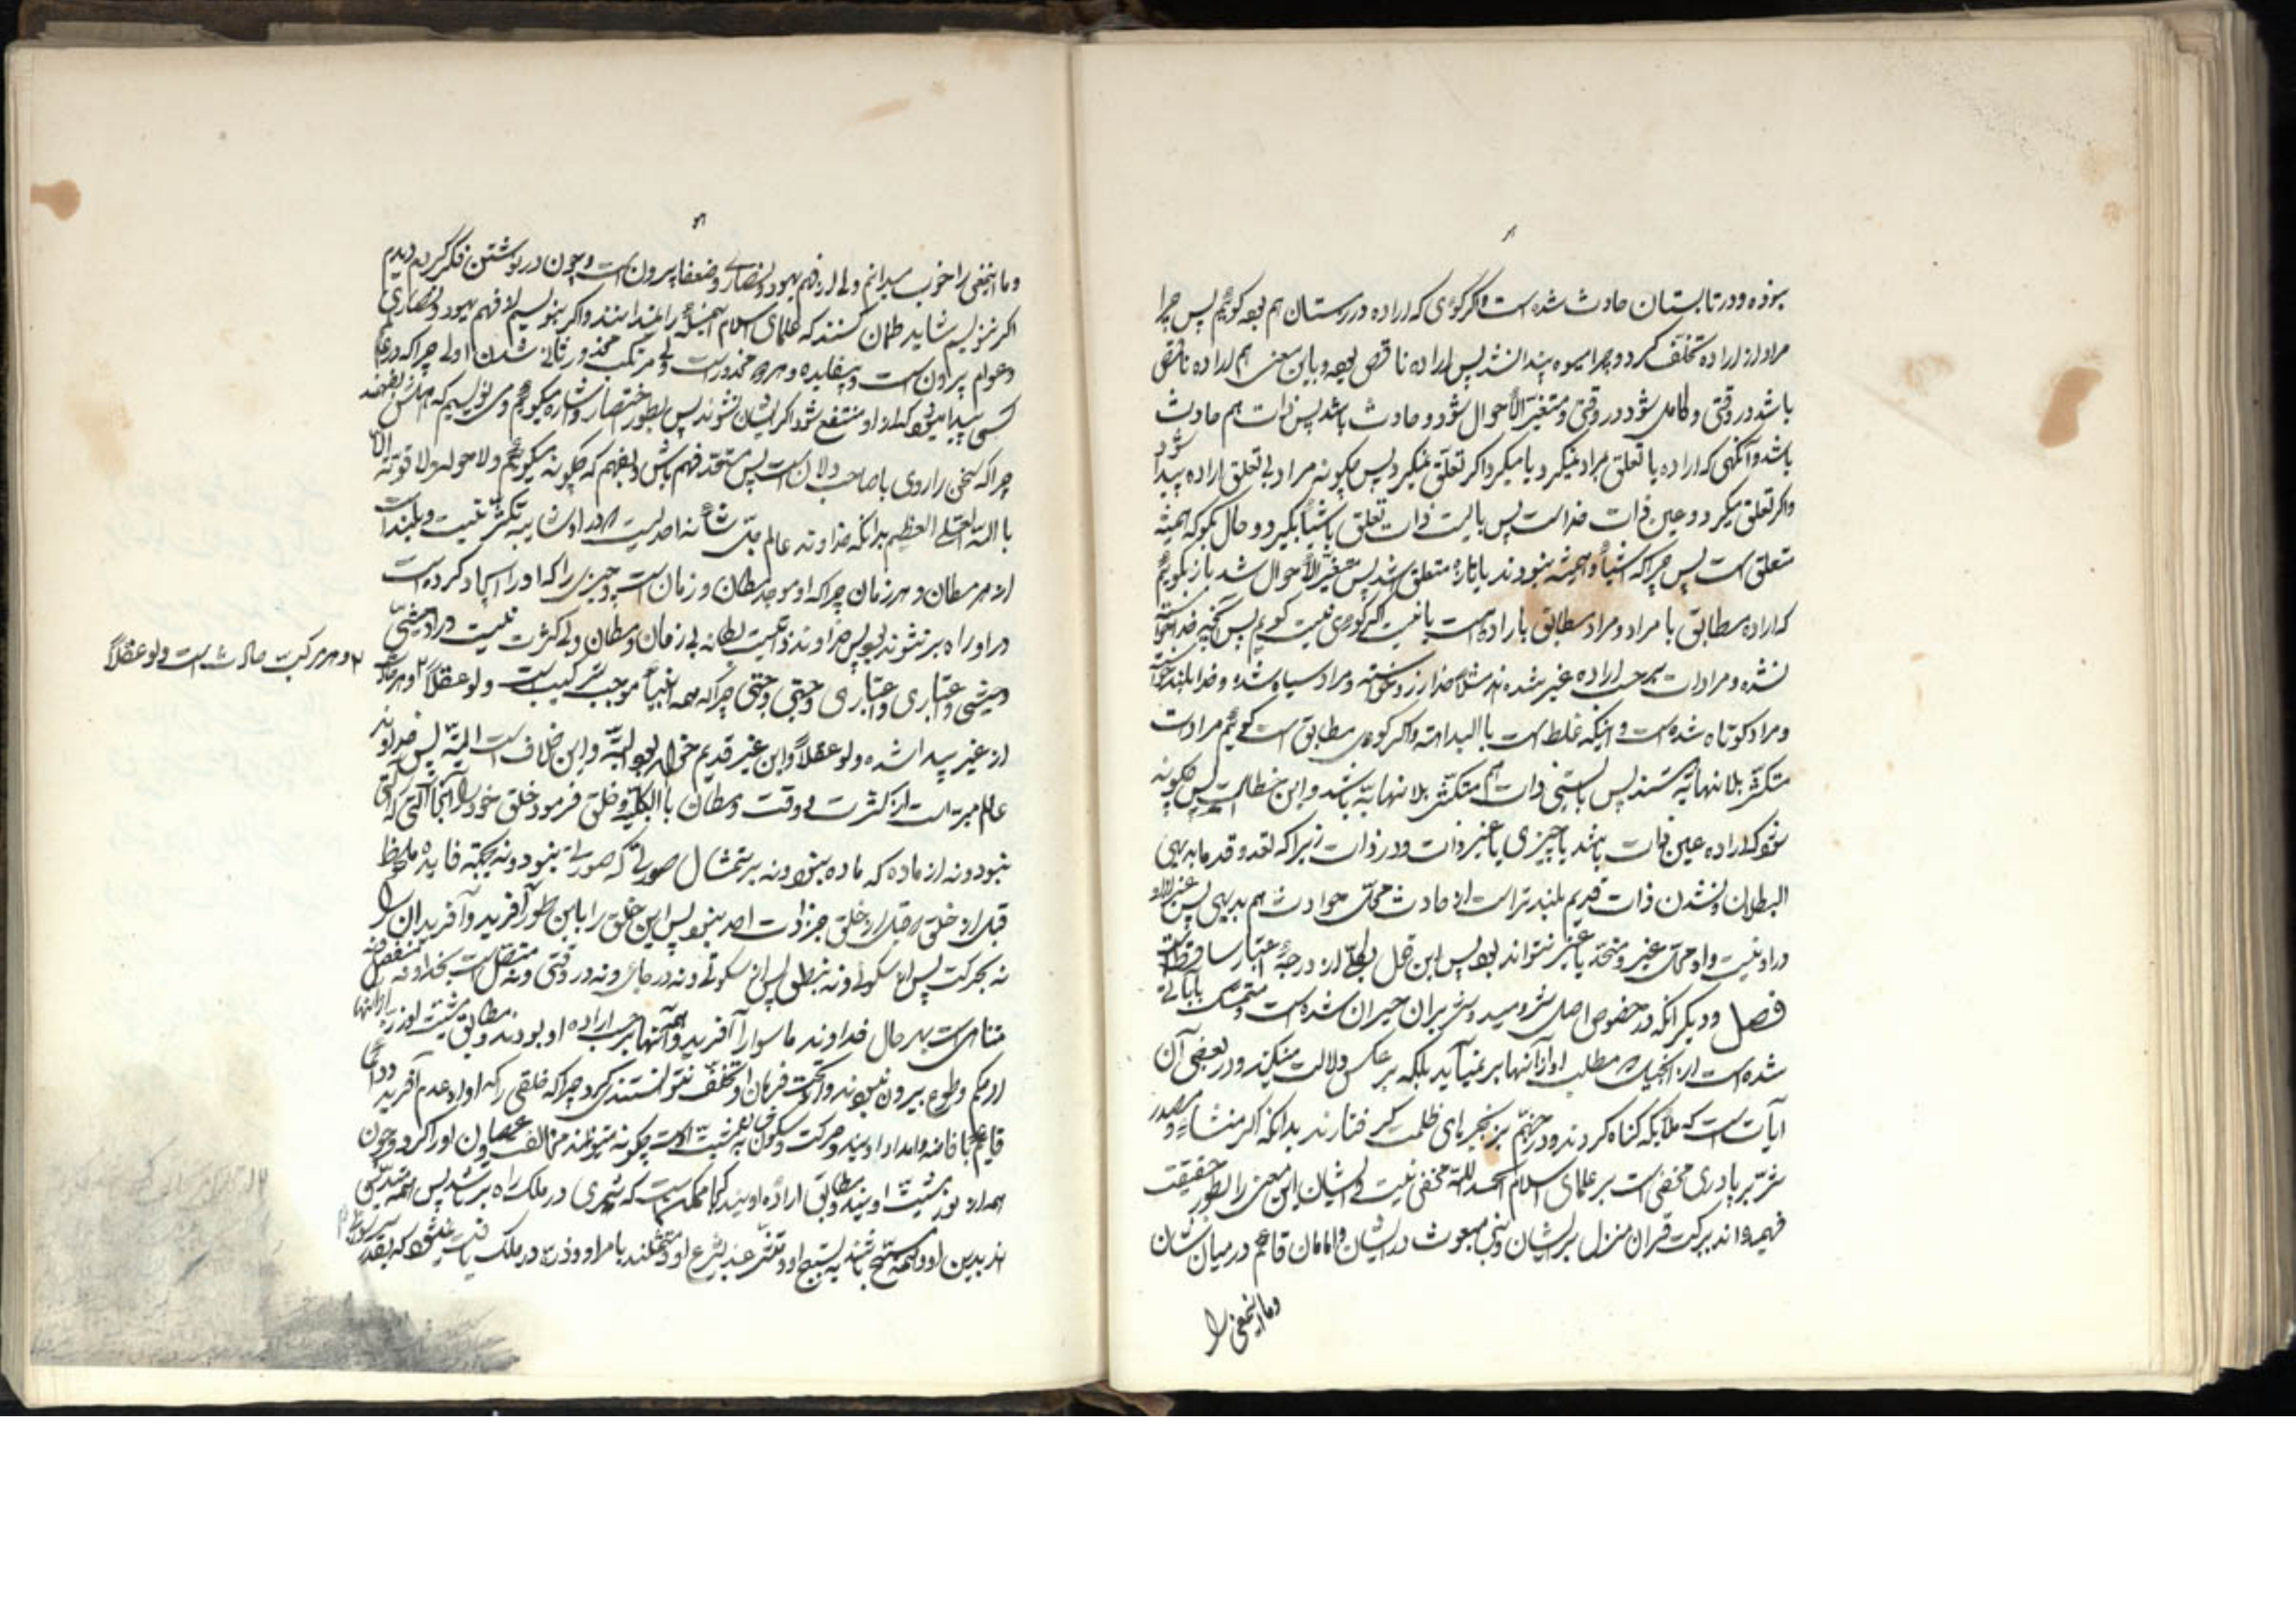 بوده و در تابستان حادث شده است و اگر گوئی که اراده در زمستان هم بوده گوئیم پس چرا
مراد از اراده تخلف کرد و چرا میوه پیدا نشد پس اراده ناقص بوده و باین معنی هم اراده ناقص
باشد در وقتی و کامل شود در وقتی و متغیر الأحوال شود و حادث باشد پس ذات هم حادث
باشد و آنگهی که اراده یا تعلق بمراد نمیگیرد یا میگیرد اگر تعلق نمیگیرد پس چگونه مراد بی تعلق اراده پیدا شود
و اگر تعلق میگیرد و عین ذات خداست پس بایست ذات تعلق باشیاء بگیرد و حال بگو که همیشه
متعلق است پس چرا که اشیاء همیشه نبودند یا تازه متعلق شد پس متغیر الأحوال شد باز بگوئیم
که اراده مطابق با مراد و مراد مطابق با اراده هست یا نیست اگر گوئی نیست گوئیم پس آنچه خدا خواسته
نشده و مرادات بر حسب اراده غیر شده اند مثلا خدا زرد خواسته و مراد سیاه شده و خدا بلند خواسته
و مراد کوتاه شده است و اینکه غلط است بالبداهته و اگر گوئی مطابق است گوئیم مرادات
متکثر بلا نهایة هستند پس بایستی ذات هم متکثر بلا نهایة باشد و این خطاست پس چگونه
شود که اراده عین ذات باشد یا چیزی با غیر ذات و در ذات زیرا که تعدد قدما بدیهی
البطلان و شدن ذات قدیم بلندتر است از حادث محل حوادث هم بدیهی پس غیر از او
در او نیست و او محل غیر و متحد با غیر نتواند بود پس این قول بکلی از درجه اعتبار ساقط است
فصل و دیگر آنکه در خصوص اصل شر و سید و شریران حیران شده است و متمسک بآیاتی
شده است از انجیل که مطلب او از آنها بر نمیآید بلکه بر عکس دلالت میکند و در بعضی آن
آیات است که ملائکه گناه کردند و در جهنم بزنجیرهای ظلمت گرفتارند بدانکه اگر منشاء و مصدر
شر بر پادری مخفی است بر علمای اسلام الحمد لله مخفی نیست و ایشان این معنی را بطور حقیقت
فهمیده اند ببرکت قران منزل بر ایشان و نبی مبعوث در ایشان و امامان قائم در میان شان
و ما اینمعنی را
و ما اینمعنی را خوب میدانیم ولی از فهم یهود و نصاری و ضعفا بیرون است و چون در نوشتن فکر کردم دیدم
اگر ننویسیم شاید گمان کنند که علمای اسلام این مسئله را نمیدانند و اگر بنویسیم از فهم یهود و نصاری
و عوام بیرون است و بیفایده و هر دو محذور است ولی مرتکب محذور ثانی شدن اولی چرا که در عالم
کسی پیدا میشود که از او منتفع شود اگر ایشان نشوند پس بطور اختصار و اشاره میگوئیم و می نویسیم که اهلش بفهمد
چرا که سخن را روی با صاحب دلان است پس مستعد فهم باش و بفهم که چگونه میگوئیم و لا حول و لا قوة الا
بالله العلی العظیم بدانکه خداوند عالم جل شأنه احدیست که در او شایبه تکثر نیست و بلند است
از هر مکان و هر زمان چرا که او موجد مکان و زمان است و چیزی را که او را ایجاد کرده است
در او راه بر نتواند بود پس خداوند ذاتیست یگانه بی زمان و مکان ولی کثرت نیست در او حیثی
و حیثی و اعتباری و اعتباری و جهتی و جهتی چرا که همه اینها موجب ترکیب است ولو عقلاً ٢ و هر حادث
٢ و هر مرکب حادث است ولو عقلاً
از غیر پیدا شده ولو عقلاً و این غیر قدیم خواهد بود البته و این خلاف است البته پس خداوند
عالم مبرّاست از کثرت و وقت و مکان بالکلیه و خلق فرمود خلق خود را نه بآلتی که آلتی
نبود و نه از ماده که ماده نبود و نه بر تمثال صورتی که صورتی نبود و نه بجهة فایده ملحوظ
قبل از خلق که قبل از خلق جز ذات احد نبود پس این خلق را باین طور آفرید و آفرید ان را
نه بحرکت پس از سکونی و نه بنطق پس از سکوتی و نه در جائی و نه در وقتی و نه متصل است بخدا و نه منفصل و نه
متناهی است بهر حال خداوند ماسوا را آفرید و همه آنها بر حسب اراده او بودند و مطابق مشیت او زیرا که آنها
از حکم و طوع بیرون نبودند و از تحت فرمان او تخلف نتوانستند کرد چرا که خلقی را که او از عدم آفرید و دائماً
قایم با فاضه و امداد اویند و حرکت و سکون ایشان بمشیت اوست چگونه میتوانند مخالفت و عصیان او را کرد و چون
همه از نور مشیت اویند و مطابق اراده اویند کجا ممکن است که شری در ملک راه بر باشد پس همه متدین
اند بدین او و همه مسبح باشند به تسبیح او و متشرعند بشرع او و ممتثلند بامر او و ذره در ملک یافت نمیشود که بقدر سر موئی